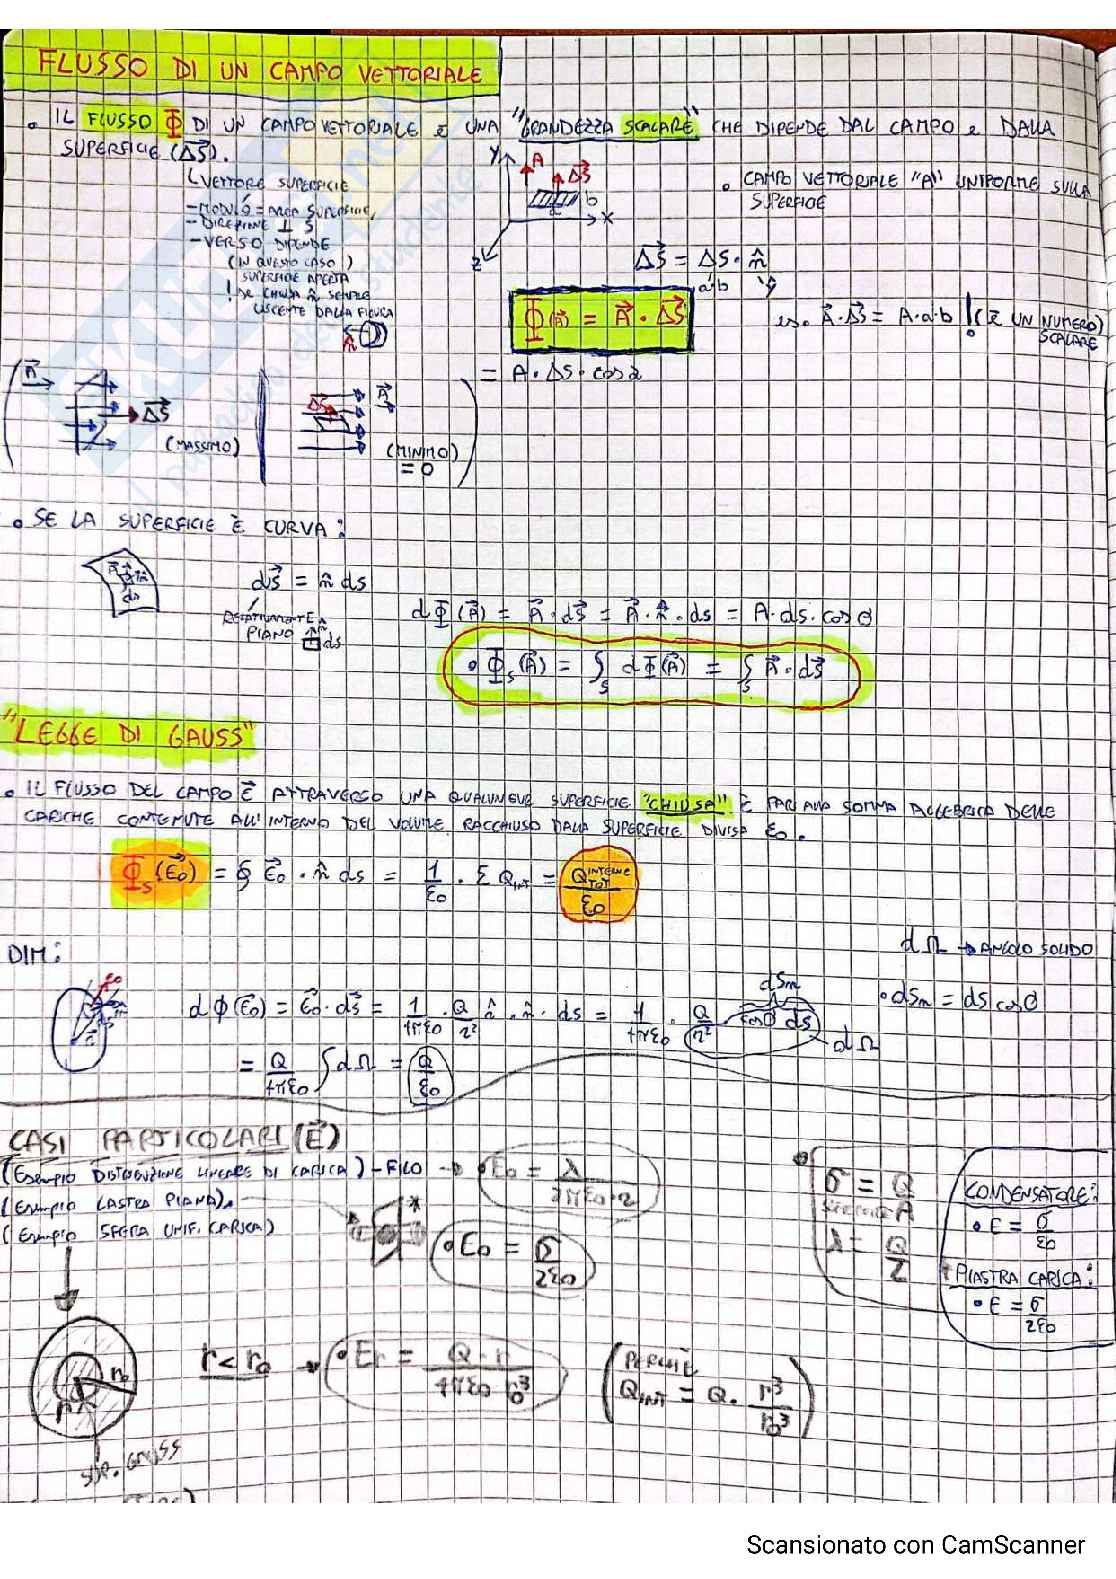 FLUSSO DI UN CAMPO VETTORIALE
• IL FLUSSO Φ DI UN CAMPO VETTORIALE È UNA "GRANDEZZA SCALARE" CHE DIPENDE DAL CAMPO e DALLA
SUPERFICIE (ΔS⃗).
↳ VETTORE SUPERFICIE
- MODULO = AREA SUPERFICIE
- DIREZIONE ⊥ S
- VERSO DIPENDE
(IN QUESTO CASO)
SUPERFICIE APERTA
! SE CHIUSA n̂ SEMPRE
USCENTE DALLA FIGURA
n̂
Y A ΔS⃗ b a X Z
• CAMPO VETTORIALE "A" UNIFORME SULLA
SUPERFICIE
ΔS⃗ = ΔS · n̂
a·b ŷ
Φ(A⃗) = A⃗ · ΔS⃗
es. A⃗ · ΔS⃗ = A·a·b ! (È UN NUMERO)
SCALARE
= A · ΔS · cos α
A⃗ ΔS⃗ (MASSIMO)
ΔS⃗ A⃗ (MINIMO)
= 0
• SE LA SUPERFICIE È CURVA:
dS⃗ = n̂ ds
PIANO ds
dΦ(A⃗) = A⃗ · dS⃗ = A⃗ · n̂ · ds = A · ds · cos θ
• Φs(A⃗) = ∫s dΦ(A⃗) = ∫s A⃗ · dS⃗
"LEGGE DI GAUSS"
• IL FLUSSO DEL CAMPO E⃗ ATTRAVERSO UNA QUALUNQUE SUPERFICIE "CHIUSA" È PARI ALLA SOMMA ALGEBRICA DELLE
CARICHE CONTENUTE ALL'INTERNO DEL VOLUME RACCHIUSO DALLA SUPERFICIE DIVISA ε0.
Φs(E⃗0) = ∮ E⃗0 · n̂ ds = 1/ε0 · Σ QINT = Q INTERNE TOT / ε0
dΩ → ANGOLO SOLIDO
DIM:
dΦ(E⃗0) = E⃗0 · dS⃗ = 1/4πε0 · Q/r² r̂ · n̂ · ds = 1/4πε0 · Q/r² cosθ ds
dSn
dΩ
• dSn = ds cos θ
= Q/4πε0 ∫ dΩ = Q/ε0
CASI PARTICOLARI (E⃗)
(Esempio DISTRIBUZIONE LINEARE DI CARICA) - FILO → • E0 = λ/2πε0·r
(Esempio LASTRA PIANA).
• E0 = σ/2ε0
(Esempio SFERA UNIF. CARICA)
σ = Q/A
λ = Q/L
CONDENSATORE:
• E = σ/ε0
PIASTRA CARICA:
• E = σ/2ε0
r0
r
SUP. GAUSS
r < r0 → • Er = Q · r / 4πε0 r0³
(PERCHÈ
QINT = Q · r³/r0³)
Scansionato con CamScanner